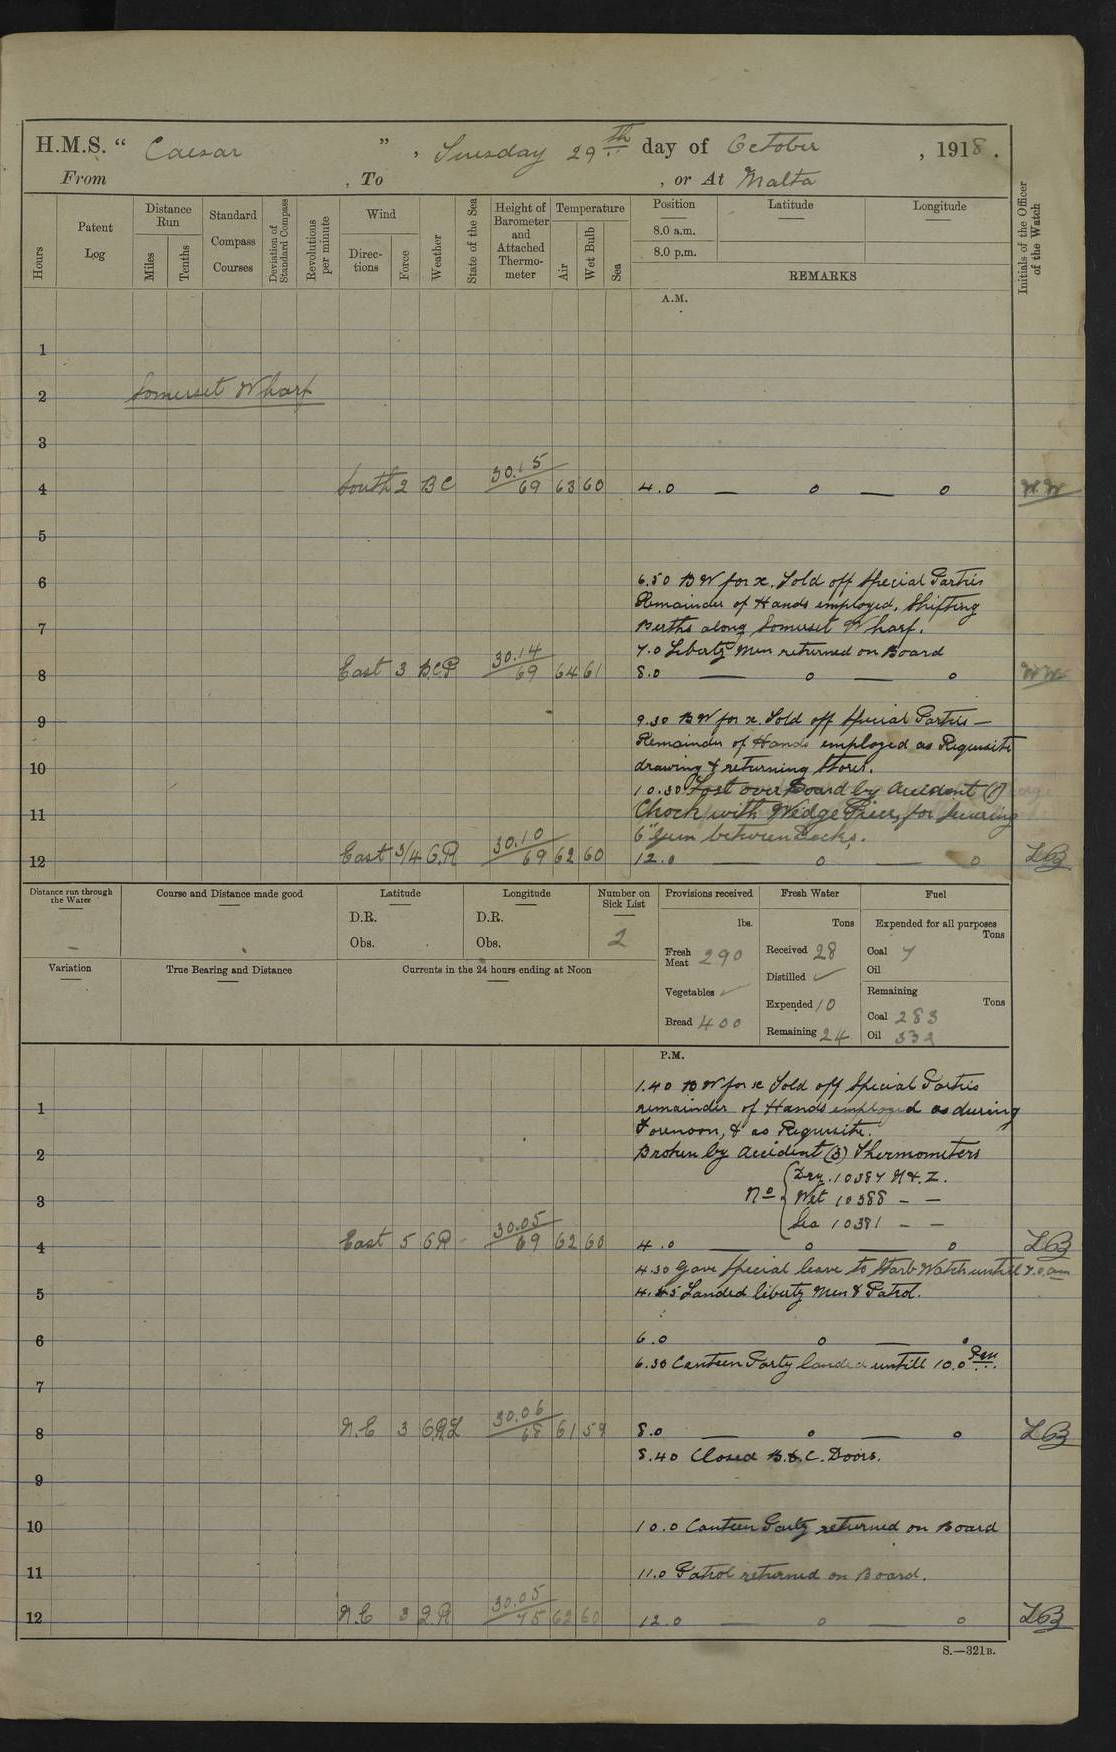 H.M.S. “ Caesar ” , Tuesday 29th day of October , 1918 .
From , To , or At Malta
Hours
Patent Log
Distance Run
Miles
Tenths
Standard Compass Courses
Deviation of Standard Compass
Revolutions per minute
Wind
Direc-tions
Force
Weather
State of the Sea
Height of Barometer and Attached Thermo-meter
Temperature
Air
Wet Bulb
Sea
Position
Latitude
Longitude
8.0 a.m.
8.0 p.m.
REMARKS
Initials of the Officer of the Watch
A.M.
1
2 Somerset Wharf
3
4 South 2 BC 30.15/69 63 60 4.0 — o — o W.W
5
6 6.50 BW for x. Told off Special Parties
Remainder of Hands employed, Shifting
7 Berths along Somerset Wharf.
7.0 Liberty Men returned on Board
8 East 3 B.C.P 30.14/69 64 61 8.0 — o — o WW
9 9.30 BW for x. Told off Special Parties —
Remainder of Hands employed as Requisite
10 drawing & returning Stores.
10.30 Lost over Board by Accident (1)
11 Chock with Wedge Piece, for Securing
6" Gun between Decks.
12 East 3/4 C.R 30.10/69 62 60 12.0 — o — o LB
Distance run through the Water
Course and Distance made good
Latitude
D.R.
Obs.
Longitude
D.R.
Obs.
Number on Sick List
2
Provisions received
lbs.
Fresh Meat 290
Vegetables ✓
Bread 400
Fresh Water
Tons
Received 28
Distilled ✓
Expended 10
Remaining 24
Fuel
Expended for all purposes
Tons
Coal 7
Oil
Remaining
Tons
Coal 283
Oil 332
Variation
True Bearing and Distance
Currents in the 24 hours ending at Noon
P.M.
1.40 BW for x Told off Special Parties
1 remainder of Hands employed as during
Forenoon, & as Requisite.
2 Broken by Accident (3) Thermometers
No { Dry. 10387 N & Z.
3 Wet 10388 — —
Sea 10381 — —
4 East 5 C.R 30.05/69 62 60 4.0 — o — o LB
4.30 Gave Special leave to Starb Watch untill 7.0 am
5 4.45 Landed liberty Men & Patrol.
6 6.0 o — o
6.30 Canteen Party landed untill 10.0 Pm.
7
8 N.E 3 C.R.L 30.06/68 61 59 8.0 — o — o LB
8.40 Closed B.&.C. Doors.
9
10 10.0 Canteen Party returned on Board
11 11.0 Patrol returned on Board.
12 N.E 3 Q.R 30.05/75 62 60 12.0 — o — o LB
S.—321B.